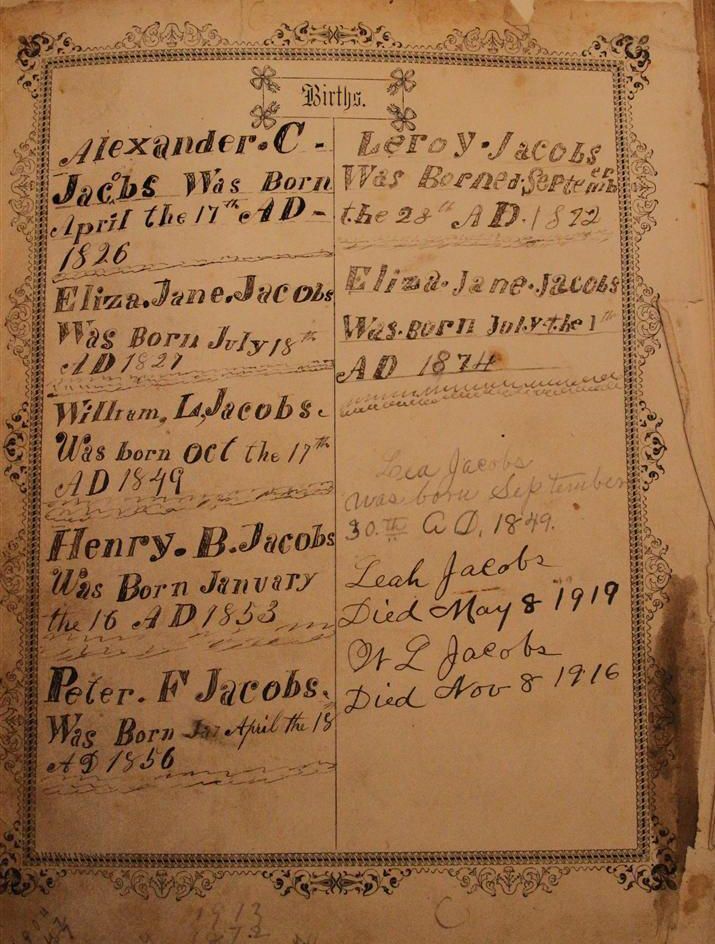 Births.
Alexander. C -
Jacobs Was Born
April the 17th AD -
1826
Eliza. Jane. Jacobs
Was Born July 18th
AD 1827
William, L, Jacobs.
Was born Oct the 17th
AD 1849
Henry. B. Jacobs
Was Born January
the 16 AD 1853
Peter. F Jacobs.
Was Born April the 18
AD 1856
Leroy. Jacobs
Was Borned, September
the 28th AD. 1872
Eliza. Jane. Jacobs
Was. Born July. the 1th
AD 1874
Lea Jacobs
was born September
30.th A D, 1849.
Leah Jacobs
Died May 8 1919
W L Jacobs
Died Nov 8 1916
1913
1872